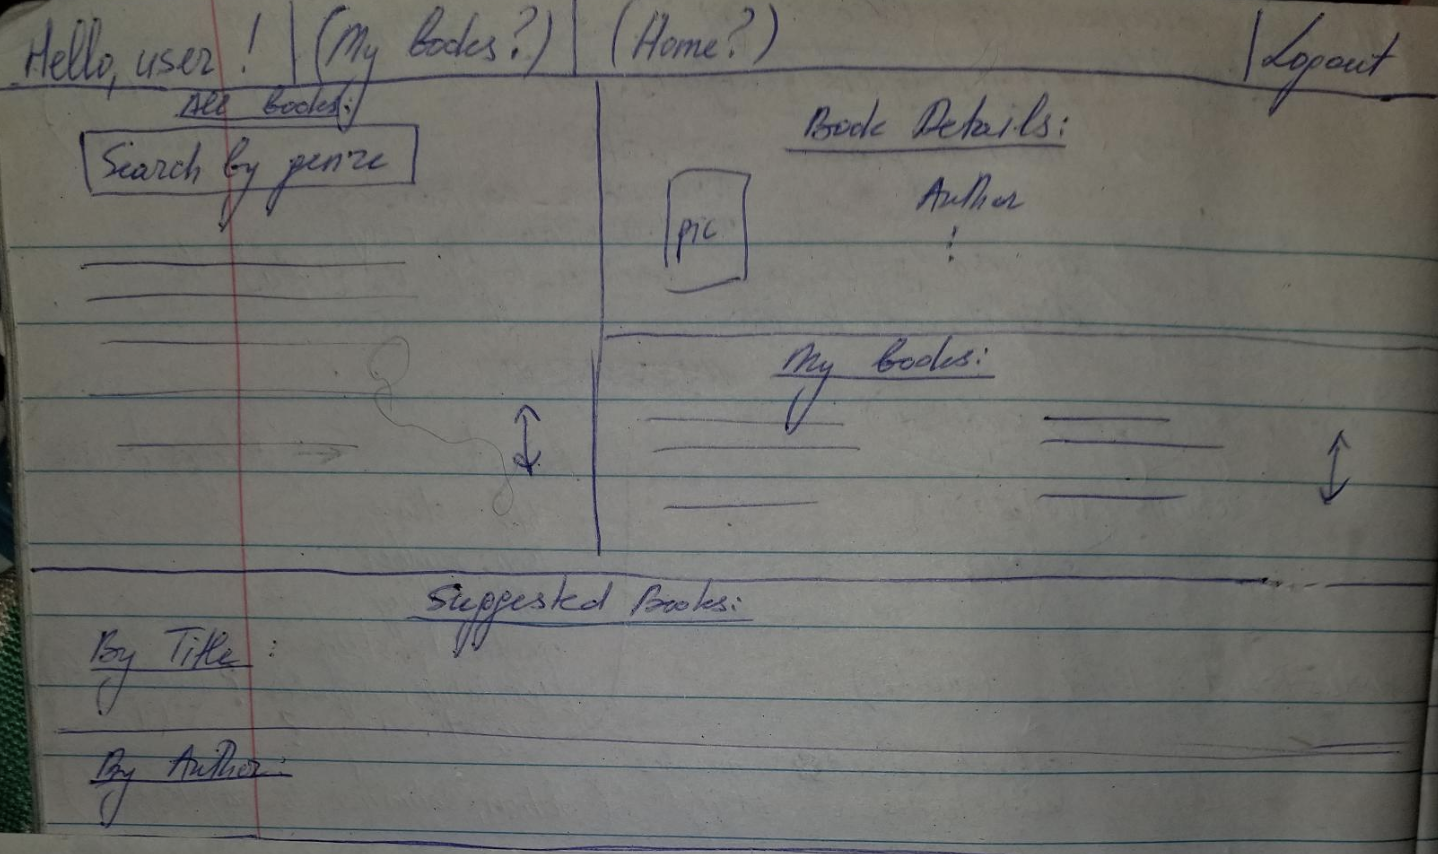 Hello, user! (My books?) (Home?) Logout
All books:
Search by genre
Book Details:
Author
pic
My books:
Suggested Books:
By Title:
By Author: